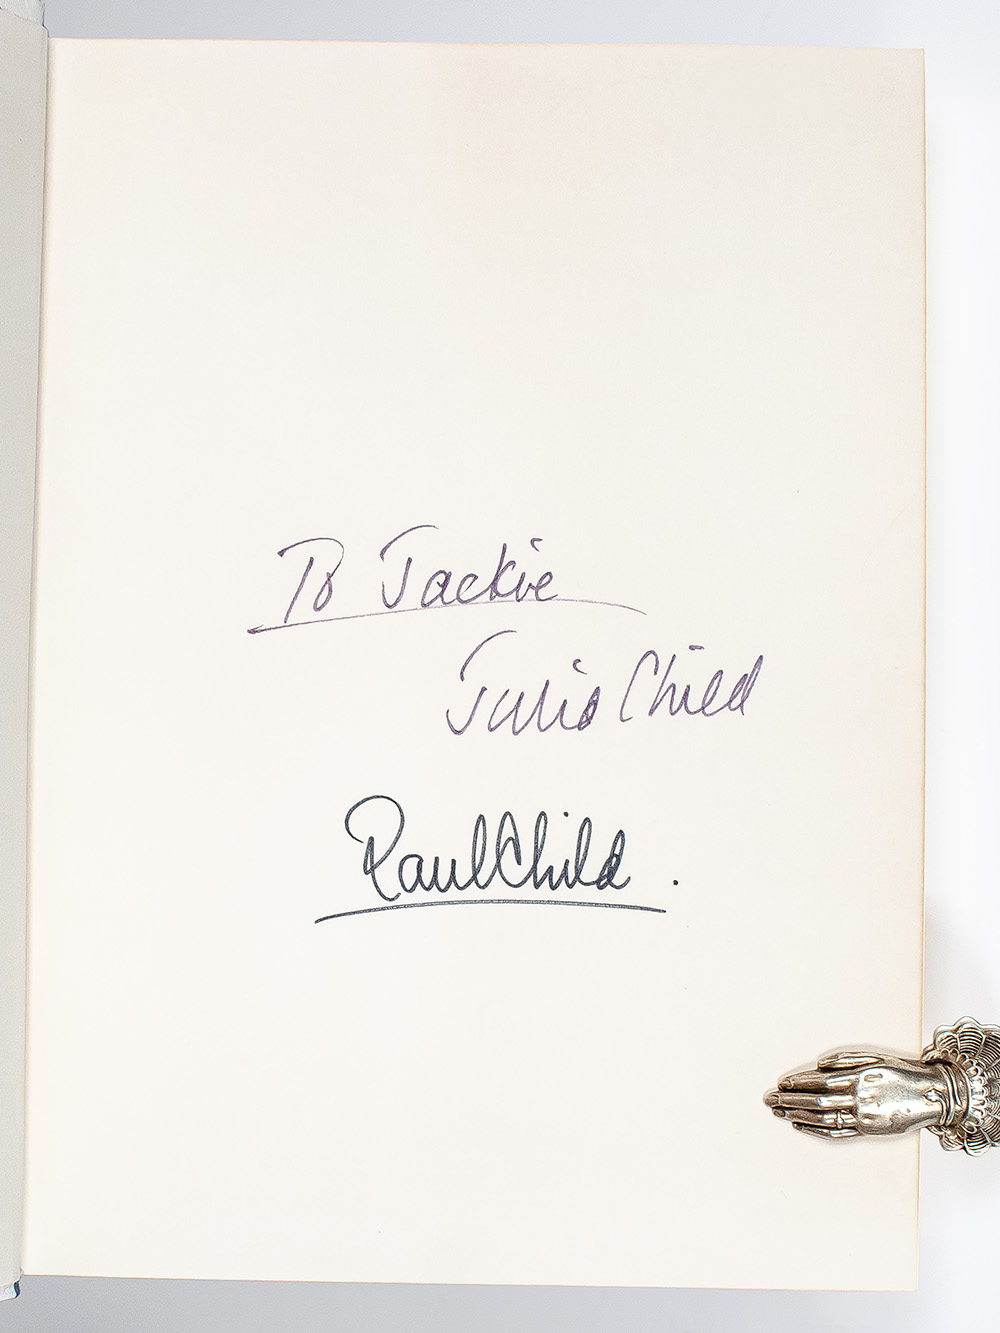 To Jackie
Julia Child
Paul Child.